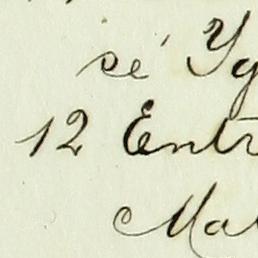 sé Yg
12 Entr
Mal